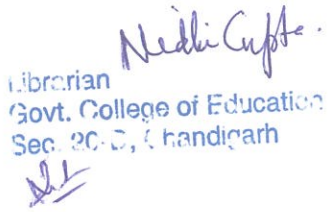 Nidhi Gupta.
Librarian
Govt. College of Education
Sec. 20-D, Chandigarh